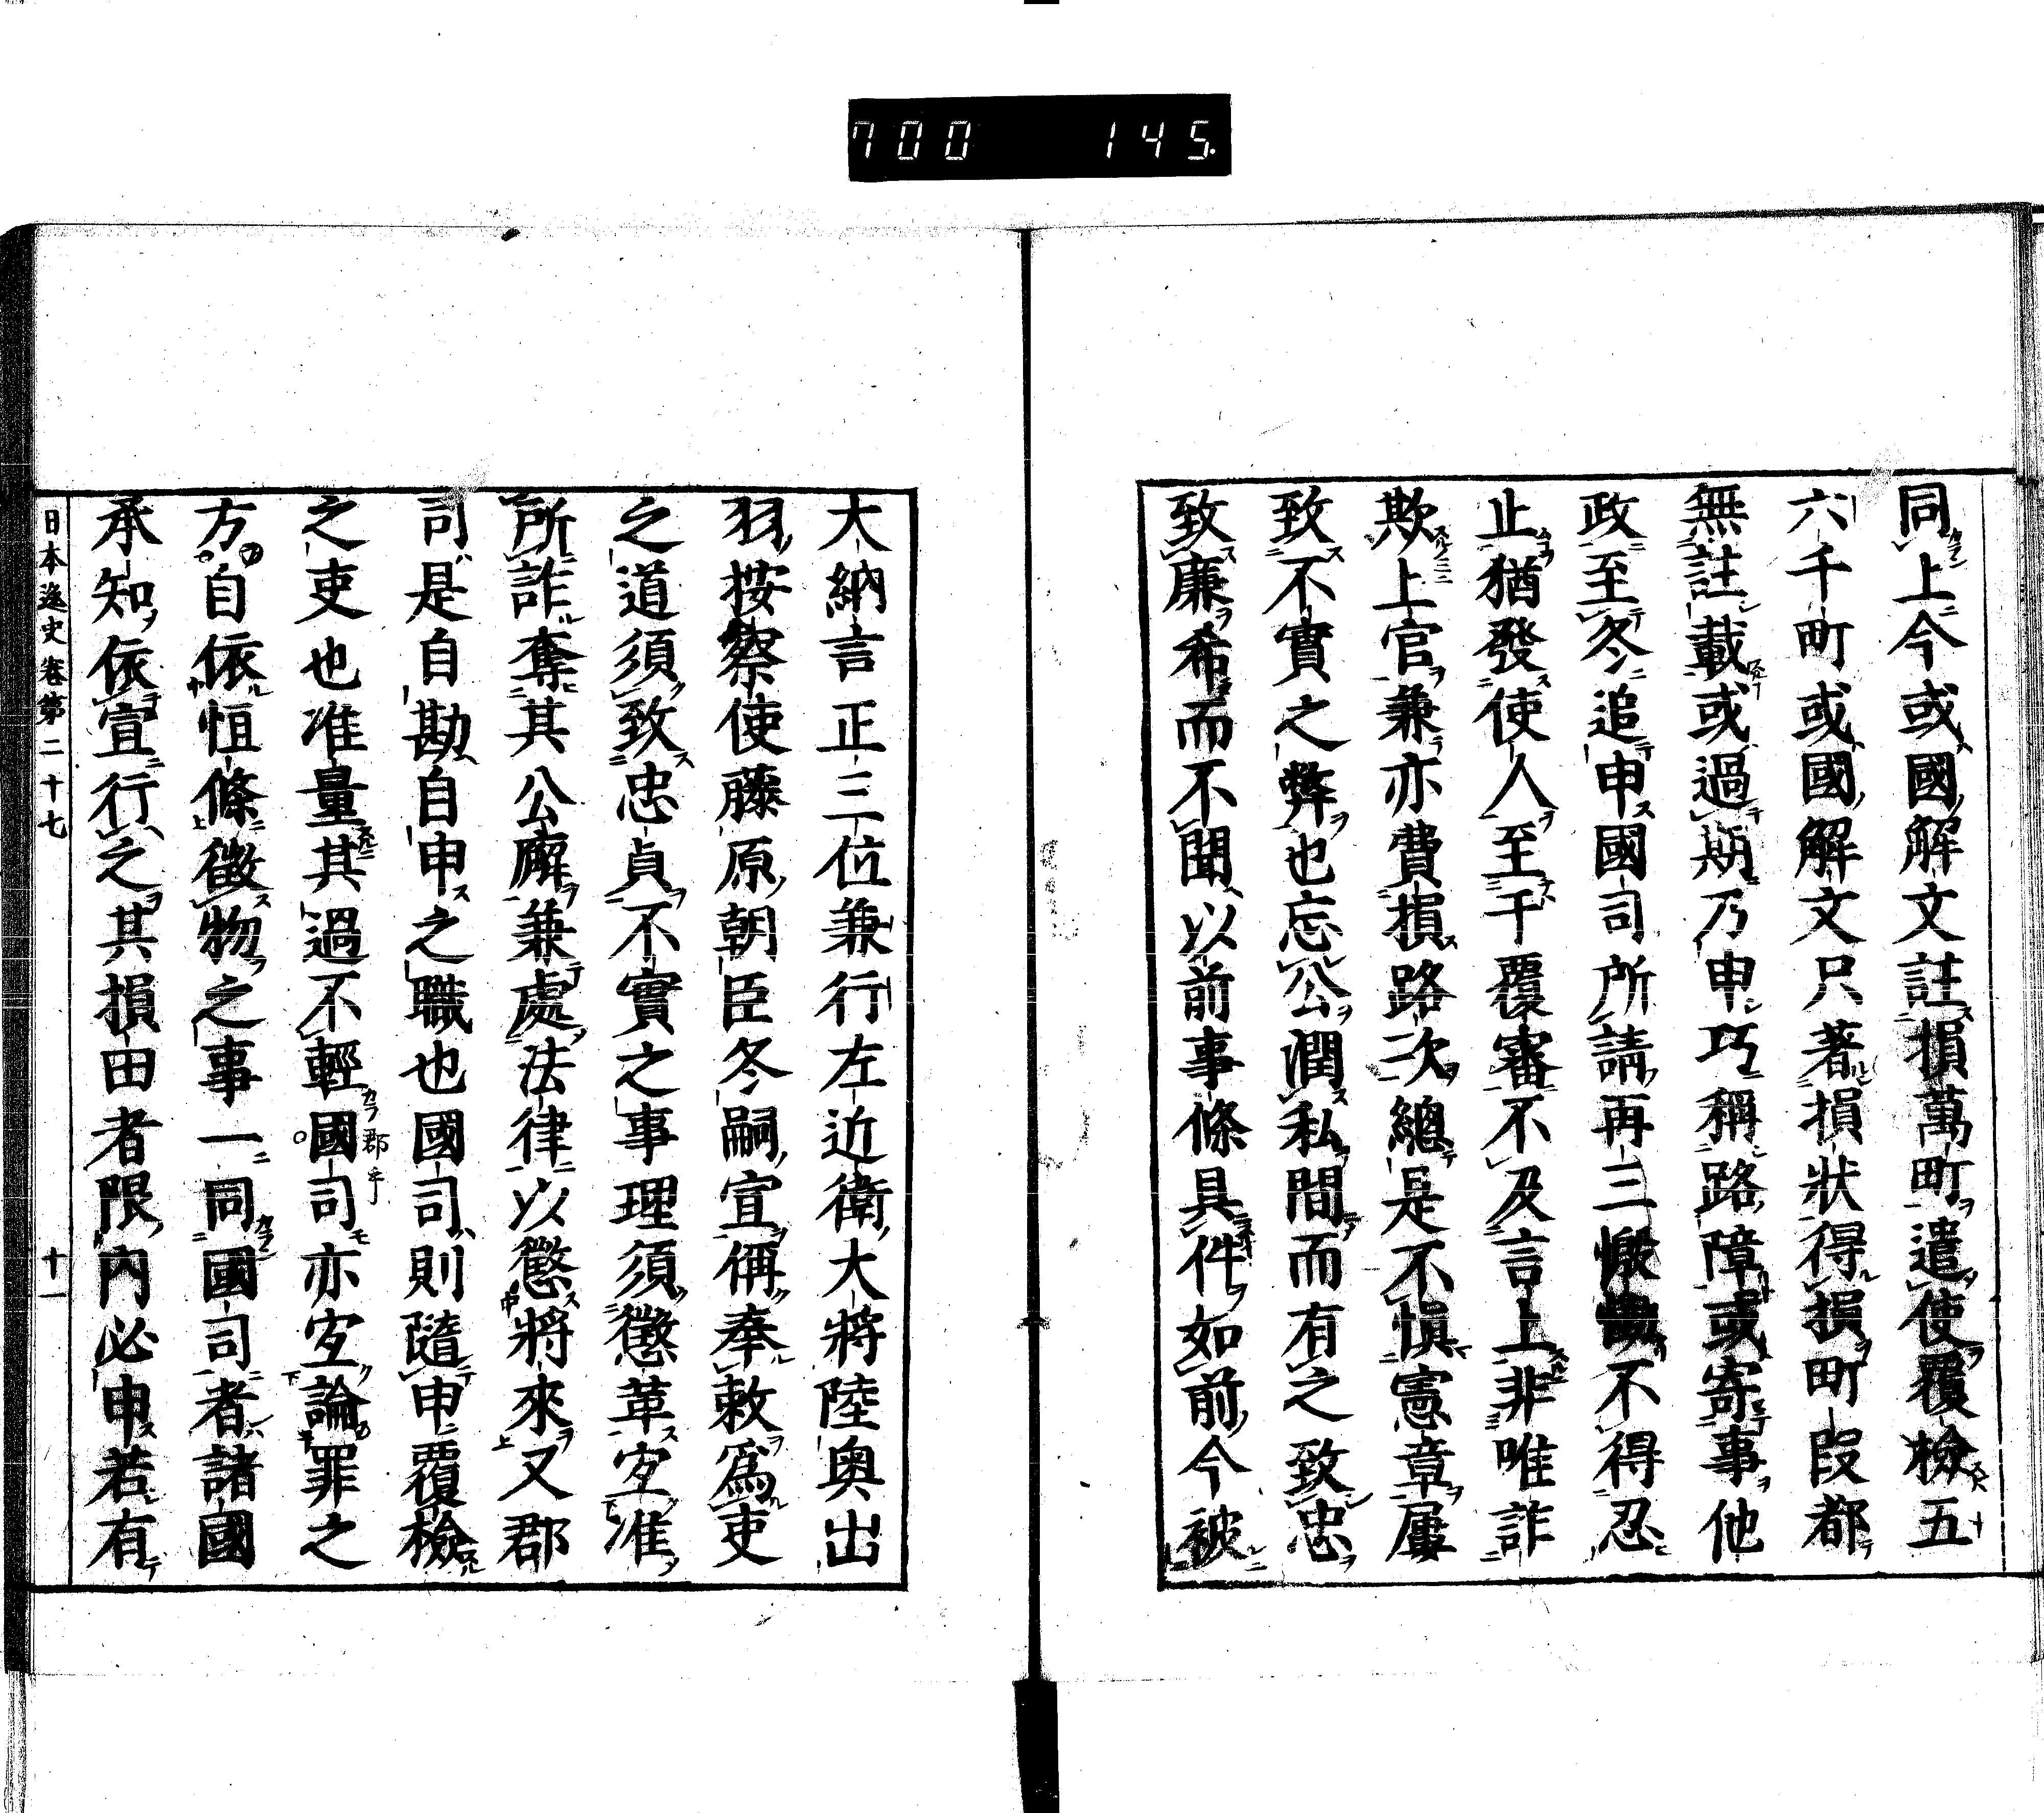 700 145
同上今或國解文註損萬町遣使覆檢五
六千町或國解文只著損狀得損町段都
無註載或過期乃申巧稱路障或寄事他
政至冬追申國司所請再三慇懃不得忍
止猶發使人至于覆審不及言上非唯詐
欺上官兼亦費損路次總是不愼憲章屢
致不實之弊也忘公潤私間而有之致忠
致廉希而不聞以前事條具件如前今被
大納言正三位兼行左近衛大將陸奧出
羽按察使藤原朝臣冬嗣宣偁奉敕爲吏
之道須致忠貞不實之事理須懲革宜准
所詐奪其公廨兼處法律以懲將來又郡
司是自勘自申之職也國司則隨申覆檢
之吏也准量其過不輕國司亦宜論罪之
方自依恒條徵物之事一同國司者諸國
承知依宣行之其損田者限內必申若有
日本逸史卷第二十七 十一